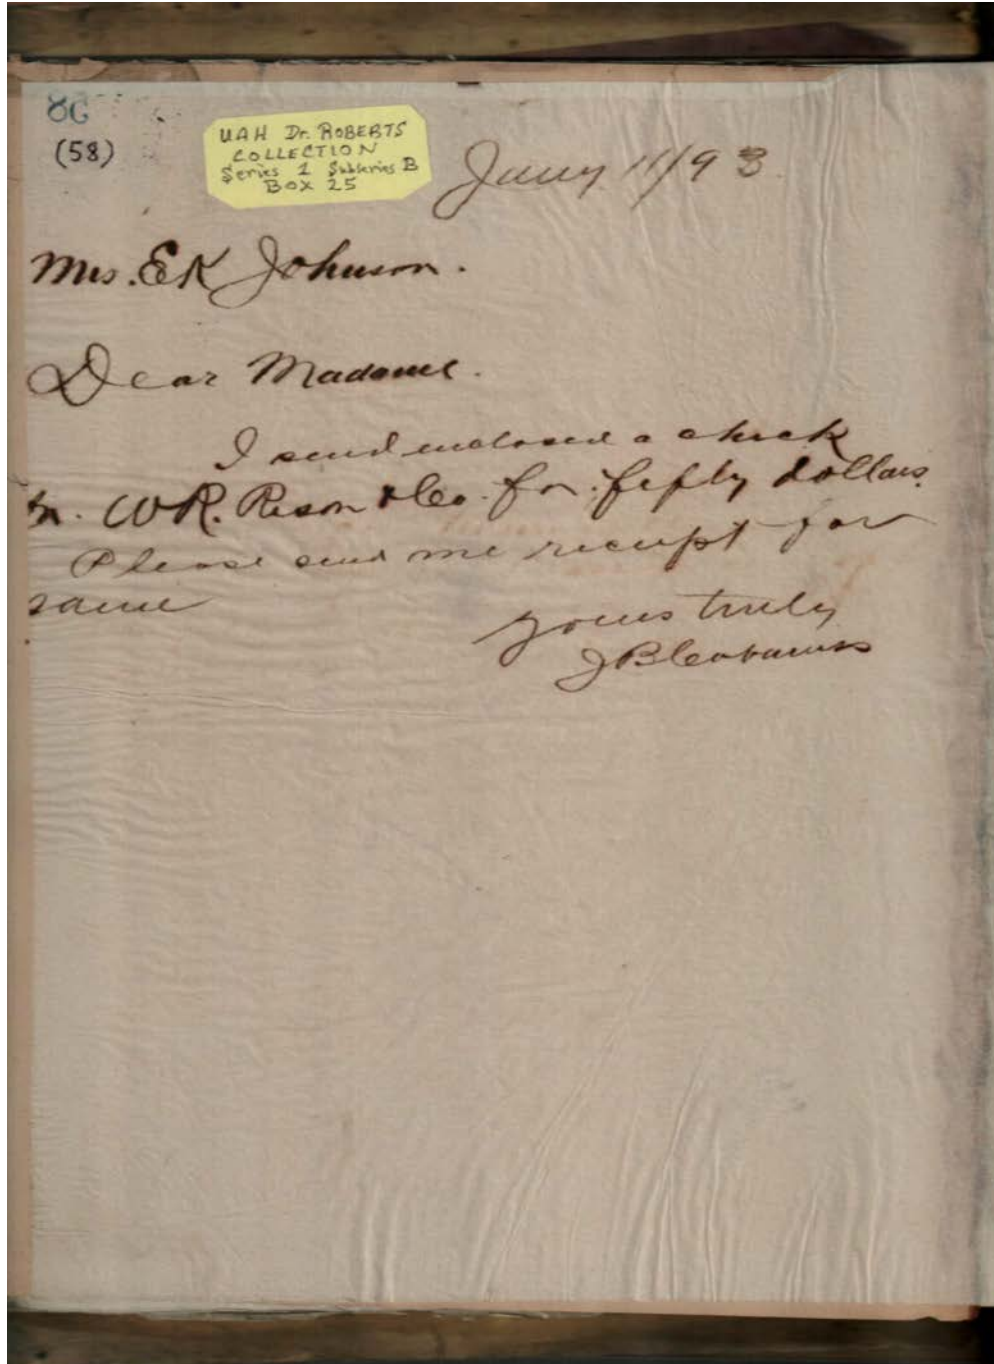 86
(58)
UAH Dr. ROBERTS
COLLECTION
Series 1 Subseries B
BOX 25
Jany. 11/93
Mrs. EK Johnson.
Dear Madame.
I send enclosed a check
W.R. Rison & Co. for fifty dollars.
Please send me receipt for
same
yours truly
JB